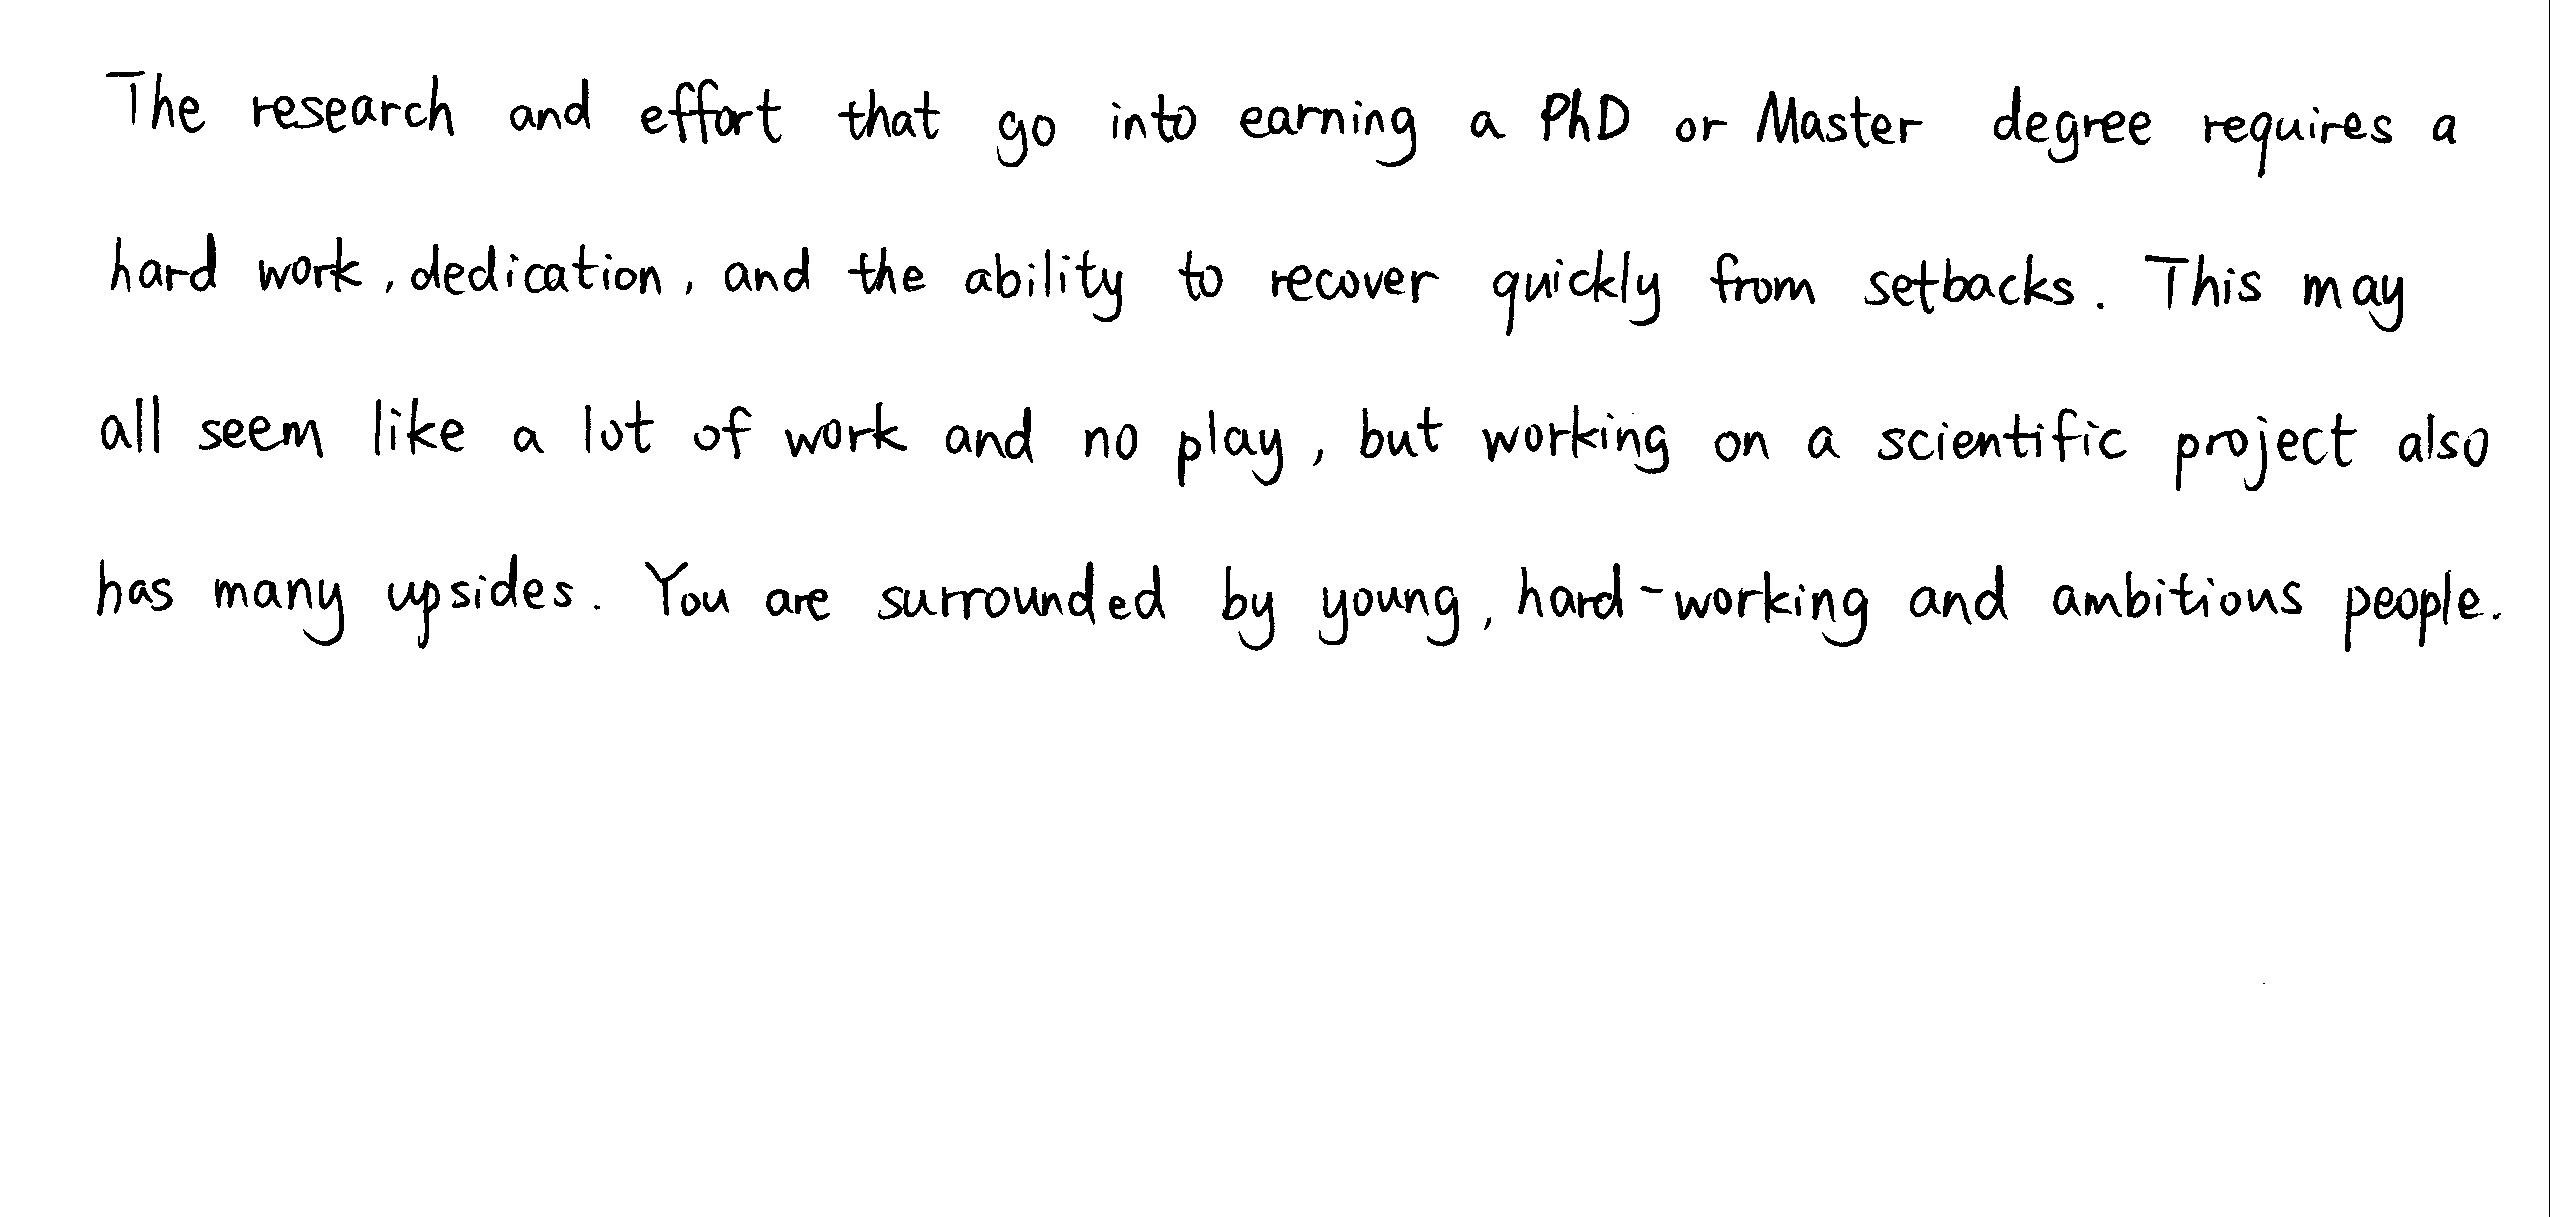 The research and effort that go into earning a PhD or Master degree requires a
hard work, dedication, and the ability to recover quickly from setbacks. This may
all seem like a lot of work and no play, but working on a scientific project also
has many upsides. You are surrounded by young, hard-working and ambitious people.